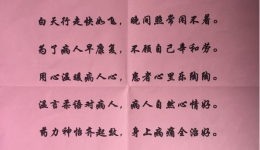 白天行走快如飞，晚间照常闲不着。
为了病人早康复，不顾自己辛和劳。
用心温暖病人心，患者心里乐陶陶。
温言柔语对病人，病人自然心情好。
药力神怡齐起效，身上病痛全治好。